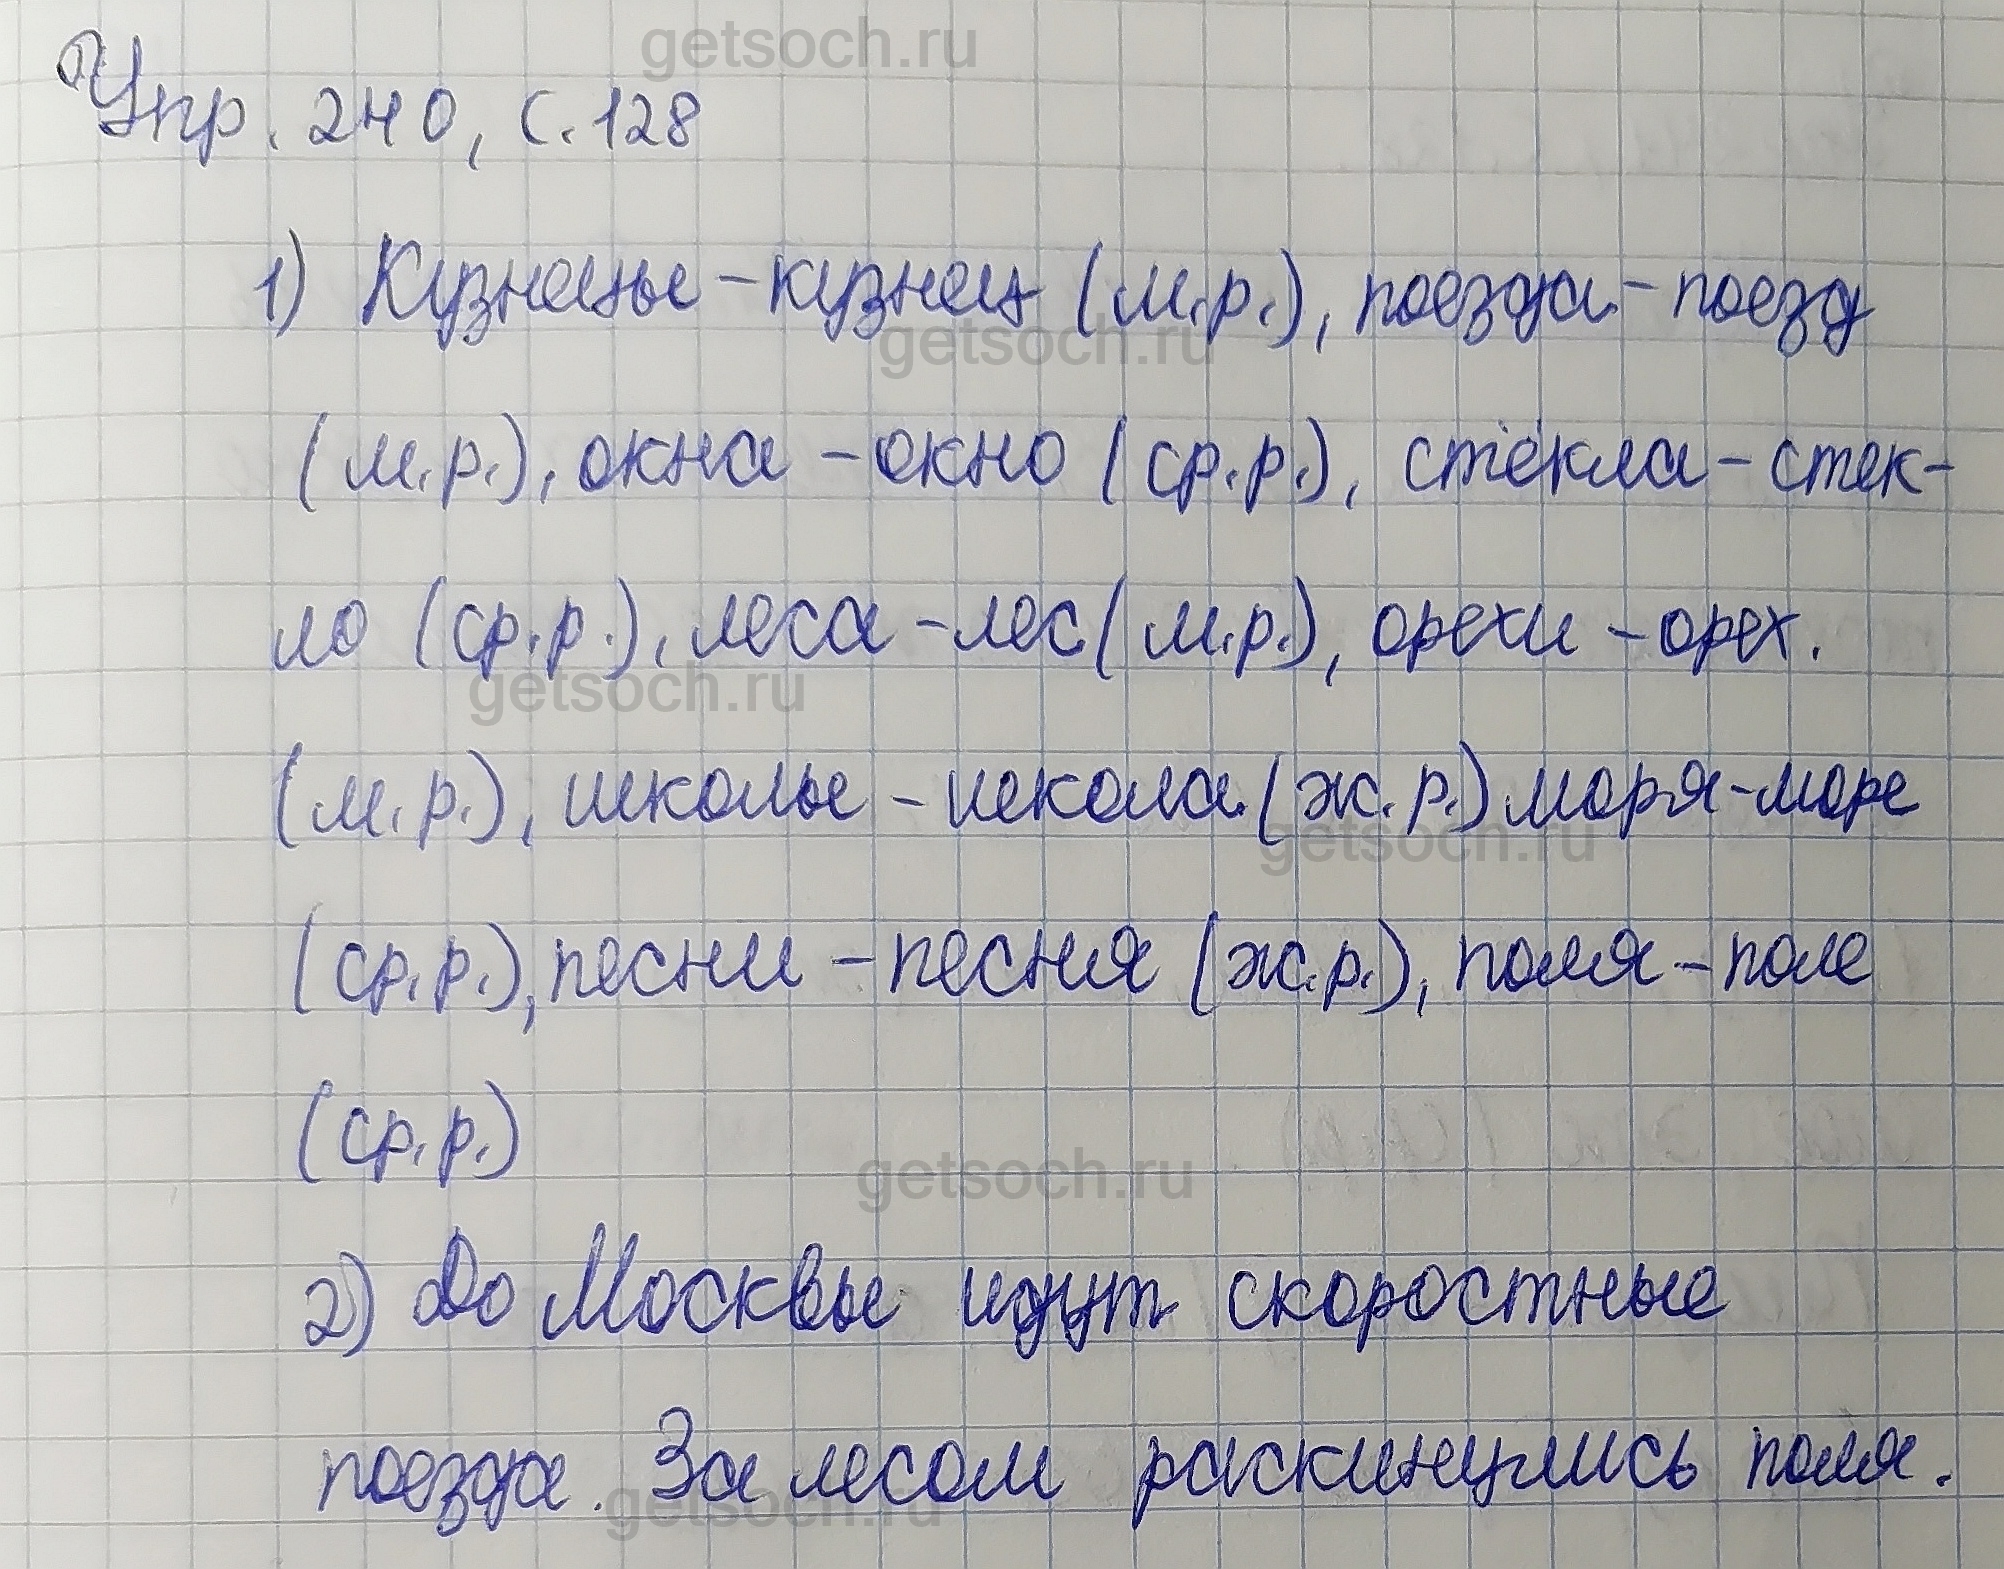 getsoch.ru
Упр. 240, с. 128
1) Кузнецы - кузнец (м.р.), поезда - поезд
getsoch.ru
(м.р.), окна - окно (ср.р.), стёкла - стек-
ло (ср.р.), леса - лес (м.р.), орехи - орех.
getsoch.ru
(м.р.), школы - школа (ж.р.) моря - море
getsoch.ru
(ср.р.), песни - песня (ж.р.), поля - поле
(ср.р.)
getsoch.ru
2) До Москвы идут скоростные
поезда. За лесом раскинулись поля.
getsoch.ru